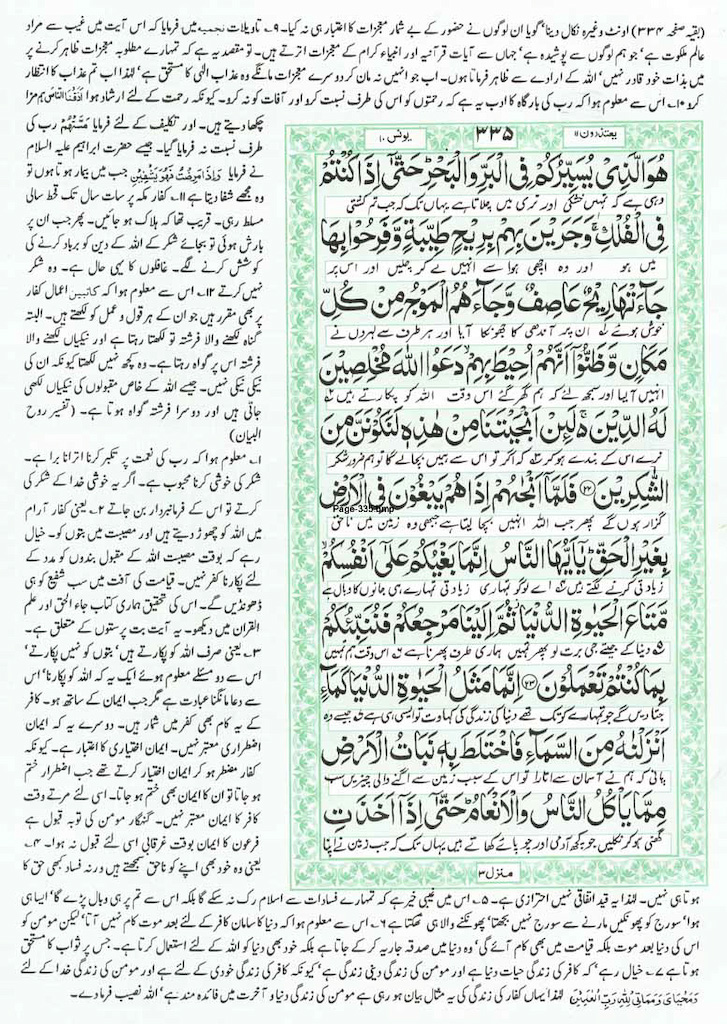 (بقیہ صفحہ ۳۳۴) اونٹ وغیرہ نکال دینا' گویا ان لوگوں نے حضور کے بے شمار معجزات کا اعتبار ہی نہ کیا۔ ۹۔ تاویلات نجمیہ میں فرمایا کہ اس آیت میں غیب سے مراد
عالم ملکوت ہے' جو ہم لوگوں سے پوشیدہ ہے' جہاں سے آیات قرآنیہ اور انبیاء کرام کے معجزات اترتے ہیں۔ تو مقصد یہ ہے کہ تمہارے مطلوبہ معجزات ظاہر کرنے پر
میں بذات خود قادر نہیں' اللہ کے ارادے سے ظاہر فرماتا ہوں۔ اب جو انہیں نہ مان کر دوسرے معجزات مانگے وہ عذاب الٰہی کا مستحق ہے' لہٰذا اب تم عذاب کا انتظار
کرو ۱۰۔ اس سے معلوم ہوا کہ رب کی بارگاہ کا ادب یہ ہے کہ رحمتوں کو اس کی طرف نسبت کرو اور آفات کو نہ کرو۔ کیونکہ رحمت کے لئے ارشاد ہوا اَذَقْنَا النَّاسَ ہم مزا
چکھا دیتے ہیں۔ اور تکلیف کے لئے فرمایا مَسَّتْهُمْ رب کی
طرف نسبت نہ فرمایا گیا۔ جیسے حضرت ابراہیم علیہ السلام
نے فرمایا وَاِذَا مَرِضْتُ فَهُوَ يَشْفِيْنِ جب میں بیمار ہوتا ہوں تو
وہ مجھے شفا دیتا ہے ۱۱۔ کفار مکہ پر سات سال تک قحط سالی
مسلط رہی۔ قریب تھا کہ ہلاک ہو جائیں۔ پھر جب ان پر
بارش ہوئی تو بجائے شکر کے اللہ کے دین کو برباد کرنے کی
کوشش کرنے لگے۔ غافلوں کا یہی حال ہے۔ وہ شکر
نہیں کرتے ۱۲۔ اس سے معلوم ہوا کہ کاتبین اعمال کفار
پر بھی مقرر ہیں جو ان کے ہر قول و عمل کو لکھتے ہیں۔ البتہ
گناہ لکھنے والا فرشتہ تو لکھتا رہتا ہے اور نیکیاں لکھنے والا
فرشتہ اس پر گواہ رہتا ہے۔ وہ کچھ نہیں لکھتا کیونکہ ان کی
نیکی نیکی نہیں۔ جیسے اللہ کے خاص مقبولوں کی نیکیاں لکھی
جاتی ہیں اور دوسرا فرشتہ گواہ ہوتا ہے۔ (تفسیر روح
البیان)
۱۔ معلوم ہوا کہ رب کی نعمت پر تکبر کرنا اترانا برا ہے۔
شکر کی خوشی کرنا محبوب ہے۔ اگر یہ خوشی خدا کے شکر کی
کرتے تو اس کے فرمانبردار بن جاتے ۲۔ یعنی کفار آرام
میں اللہ کو چھوڑ دیتے ہیں اور مصیبت میں بتوں کو۔ خیال
رہے کہ بوقت مصیبت اللہ کے مقبول بندوں کو مدد کے
لئے پکارنا کفر نہیں۔ قیامت کی آفت میں سب شفیع کو ہی
ڈھونڈیں گے۔ اس کی تحقیق ہماری کتاب جاء الحق اور علم
القرآن میں دیکھو۔ یہ آیت بت پرستوں کے متعلق ہے۔
۳۔ یعنی صرف اللہ کو پکارتے ہیں' بتوں کو نہیں پکارتے'
اس سے دو مسئلے معلوم ہوئے ایک یہ کہ اللہ کو پکارنا' اس
سے دعا مانگنا عبادت ہے مگر جب ایمان کے ساتھ ہو۔ کافر
کے یہ کام بھی کفر میں شمار ہیں۔ دوسرے یہ کہ ایمان
اضطراری معتبر نہیں۔ ایمان اختیاری کا اعتبار ہے۔ کیونکہ
کفار مضطر ہو کر ایمان اختیار کرتے تھے جب اضطرار ختم
ہو جاتا تو ان کا ایمان بھی ختم ہو جاتا۔ اسی لئے مرتے وقت
کافر کا ایمان معتبر نہیں۔ گنہگار مومن کی توبہ قبول ہے
فرعون کا ایمان بوقت غرقابی اسی لئے قبول نہ ہوا۔ ۴۔
یعنی وہ خود بھی اپنے کو ناحق سمجھتے ہیں ورنہ فساد کبھی حق کا
یعتذرون ۱۱
۳۳۵
یونس ۱۰
هُوَ الَّذِىْ يُسَيِّرُكُمْ فِى الْبَرِّ وَالْبَحْرِ حَتّٰى اِذَا كُنْتُمْ
وہی ہے کہ تمہیں خشکی اور تری میں چلاتا ہے یہاں تک کہ جب تم کشتی
فِى الْفُلْكِ وَجَرَيْنَ بِهِمْ بِرِيْحٍ طَيِّبَةٍ وَّفَرِحُوْا بِهَا
میں ہو اور وہ اچھی ہوا سے انہیں لے کر چلیں اور اس پر
جَآءَتْهَا رِيْحٌ عَاصِفٌ وَّجَآءَهُمُ الْمَوْجُ مِنْ كُلِّ
خوش ہوئے ان پر آندھی کا جھونکا آیا اور ہر طرف سے لہروں نے
مَكَانٍ وَّظَنُّوْا اَنَّهُمْ اُحِيْطَ بِهِمْ دَعَوُا اللّٰهَ مُخْلِصِيْنَ
انہیں آلیا اور سمجھ لئے کہ ہم گھر گئے اس وقت اللہ کو پکارتے ہیں
لَهُ الدِّيْنَ لَئِنْ اَنْجَيْتَنَا مِنْ هٰذِهٖ لَنَكُوْنَنَّ مِنَ
نرے اس کے بندے ہو کر کہ اگر تو اس سے ہمیں بچالے گا تو ہم ضرور شکر
الشّٰكِرِيْنَ ۲۲ فَلَمَّآ اَنْجٰهُمْ اِذَا هُمْ يَبْغُوْنَ فِى الْاَرْضِ
Page-335.bmp
گزار ہوں گے پھر جب اللہ انہیں بچا لیتا ہے جبھی وہ زمین میں ناحق
بِغَيْرِ الْحَقِّ يٰٓاَيُّهَا النَّاسُ اِنَّمَا بَغْيُكُمْ عَلٰٓى اَنْفُسِكُمْ
زیادتی کرنے لگتے ہیں اے لوگو تمہاری زیادتی تمہارے ہی جانوں کا وبال ہے
مَّتَاعَ الْحَيٰوةِ الدُّنْيَا ثُمَّ اِلَيْنَا مَرْجِعُكُمْ فَنُنَبِّئُكُمْ
دنیا کے جیتے جی برت لو پھر تمہیں ہماری طرف پھرنا ہے اس وقت ہم تمہیں
بِمَا كُنْتُمْ تَعْمَلُوْنَ ۲۳ اِنَّمَا مَثَلُ الْحَيٰوةِ الدُّنْيَا كَمَآءٍ
جتا دیں گے جو تمہارے کوتک تھے دنیا کی زندگی کی کہاوت تو ایسی ہی ہے جیسے وہ
اَنْزَلْنٰهُ مِنَ السَّمَآءِ فَاخْتَلَطَ بِهٖ نَبَاتُ الْاَرْضِ
پانی کہ ہم نے آسمان سے اتارا تو اس کے سبب زمین سے اگنے والی چیزیں سب
مِمَّا يَاْكُلُ النَّاسُ وَالْاَنْعَامُ حَتّٰٓى اِذَآ اَخَذَتِ
گھنی ہو کر نکلیں جو کچھ آدمی اور چوپائے کھاتے ہیں یہاں تک کہ جب زمین نے اپنا
منزل ۳
ہوتا ہی نہیں۔ لہٰذا یہ قید اتفاقی نہیں احترازی ہے۔ ۵۔ اس میں غیبی خبر ہے کہ تمہارے فسادات سے اسلام رک نہ سکے گا بلکہ اس سے تم پر ہی وبال پڑے گا' ایسا ہی
ہوا' سورج کو پھونکیں مارنے سے سورج نہیں بجھتا' پھونکنے والا ہی تھکتا ہے ۶۔ اس سے معلوم ہوا کہ دنیا کا سامان کافر کے لئے بعد موت کام نہیں آتا' لیکن مومن کو
اس کی دنیا بعد موت بلکہ قیامت میں بھی کام آئے گی' وہ دنیا میں صدقہ جاریہ کر کے جاتا ہے بلکہ خود بھی دنیا کو اللہ کے لئے استعمال کرتا ہے۔ جس پر ثواب کا مستحق
ہوتا ہے ۷۔ خیال رہے' کہ کافر کی زندگی حیات دنیا ہے اور مومن کی زندگی دینی زندگی ہے' کیونکہ کافر کی زندگی خودی کے لئے ہے اور مومن کی زندگی خدا کے لئے
وَمَحْيَاىَ وَمَمَاتِىْ لِلّٰهِ رَبِّ الْعٰلَمِيْنَ لہٰذا یہاں کفار کی زندگی کی یہ مثال بیان ہو رہی ہے مومن کی زندگی دنیا و آخرت میں فائدہ مند ہے' اللہ نصیب فرمادے۔